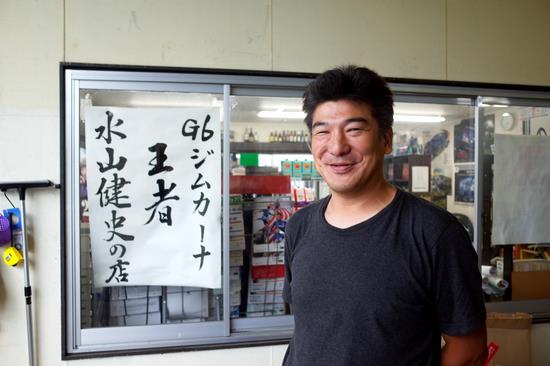 G6ジムカーナ
王者
水山健史の店